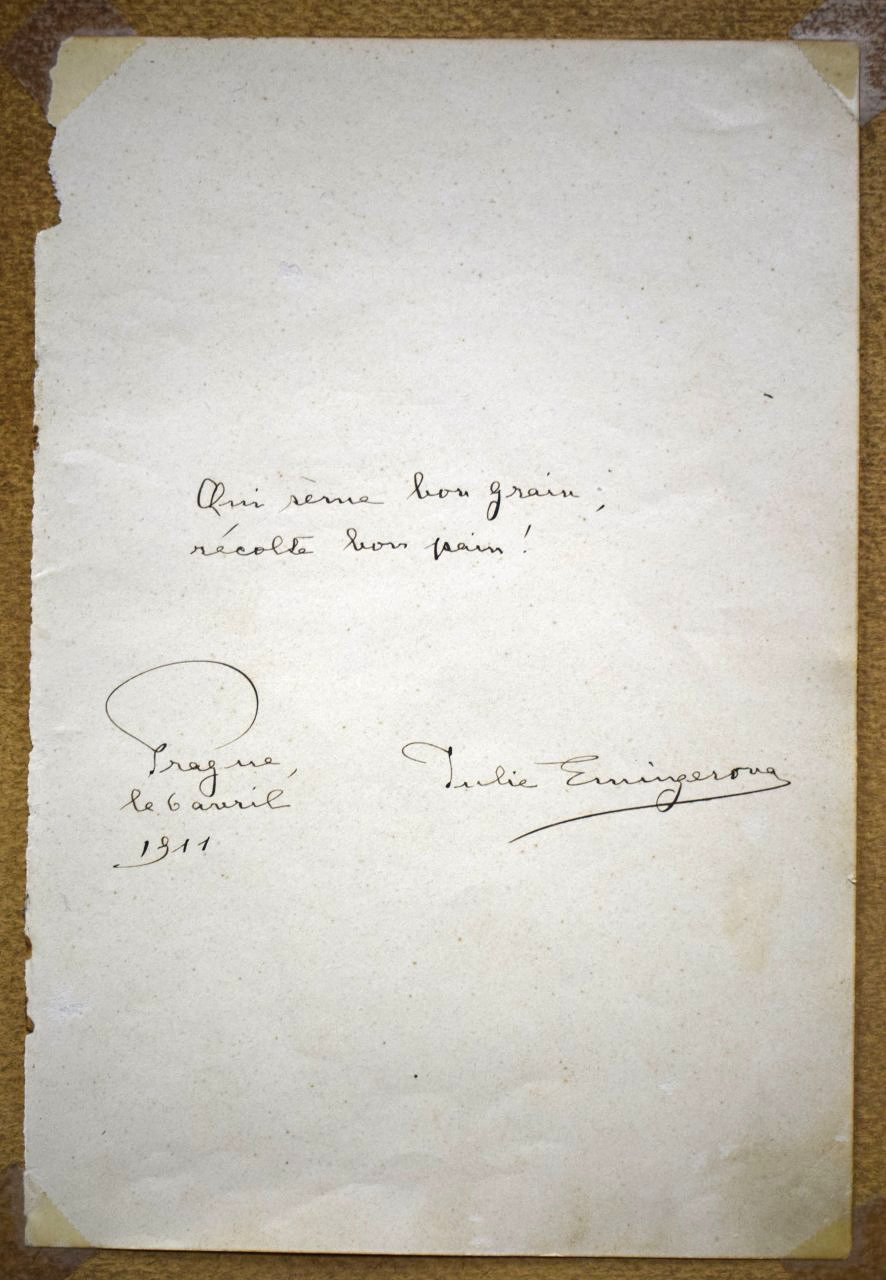 Qui sème bon grain,
récolte bon pain!
Prague,
le 6 avril
1911
Julie Emingerova